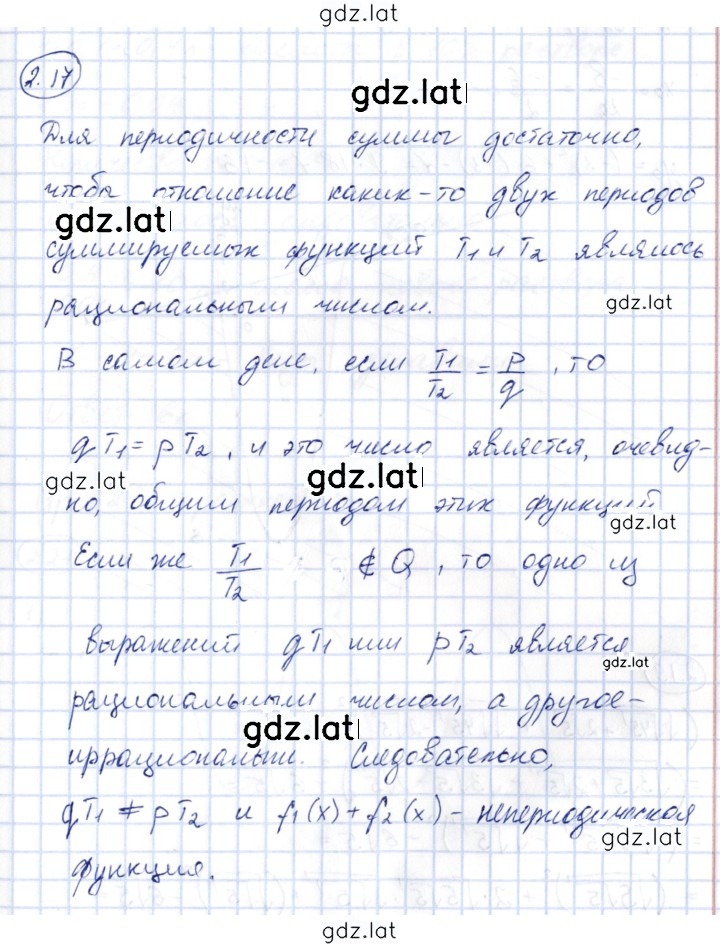 gdz.lat
2.17
gdz.lat
Для периодичности суммы достаточно,
чтобы отношение каких-то двух периодов
gdz.lat
суммируемых функций T₁ и T₂ являлось
рациональным числом.
gdz.lat
В самом деле, если T₁/T₂ = p/q, то
qT₁ = pT₂, и это число является, очевид-
gdz.lat
gdz.lat
но, общим периодом этих функций
gdz.lat
Если же T₁/T₂ ∉ Q, то одно из
выражений qT₁ или pT₂ является
gdz.lat
рациональным числом, а другое-
gdz.lat
иррациональным. Следовательно,
qT₁ ≠ pT₂ и f₁(x)+f₂(x) - непериодическая
gdz.lat
функция.
gdz.lat